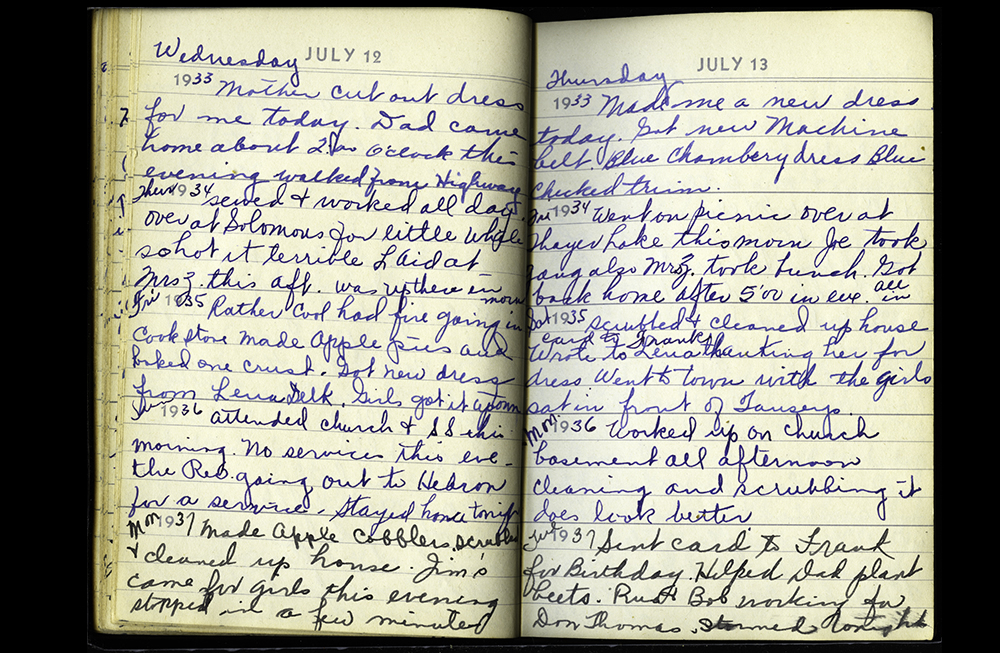 Wednesday JULY 12
1933 Mother cut out dress
for me today. Dad came
home about 2 o'clock this
evening walked from Highway
Thur 1934 sewed & worked all day
over at Solomons for little while
so hot it terrible Laid at
Mrs Z. this aft. was up there in morn
Fri 1935 Rather cool had fire going in
Cook stove made Apple pies and
baked one crust. Got new dress
from Lena Delk. Girls got it uptown
1936 attended church & SS this
morning. No services this eve-
the Rev. going out to Hebron
for a service. Stayed home tonight
Mon 1937 Made Apple Cobblers. scrubbed
& cleaned up house. Jim's
came for girls this evening
stopped in a few minutes
Thursday JULY 13
1933 Made me a new dress
today. Got new Machine
belt. Blue Chambery dress Blue
checked trim.
Fri 1934 Went on picnic over at
Thayer Lake this morn Joe took
gang also Mrs Z. took lunch. Got
back home after 5:00 in eve. all in
Sat 1935 scrubbed & cleaned up house
card to Frank
Wrote to Lena thanking her for
dress. Went to town with the girls
sat in front of Tauseys.
Mon. 1936 Worked up on church
basement all afternoon
cleaning and scrubbing it
does look better
Tue 1937 Sent card to Frank
for Birthday. Helped Dad plant
beets. Bob working for
Don Thomas. tonight